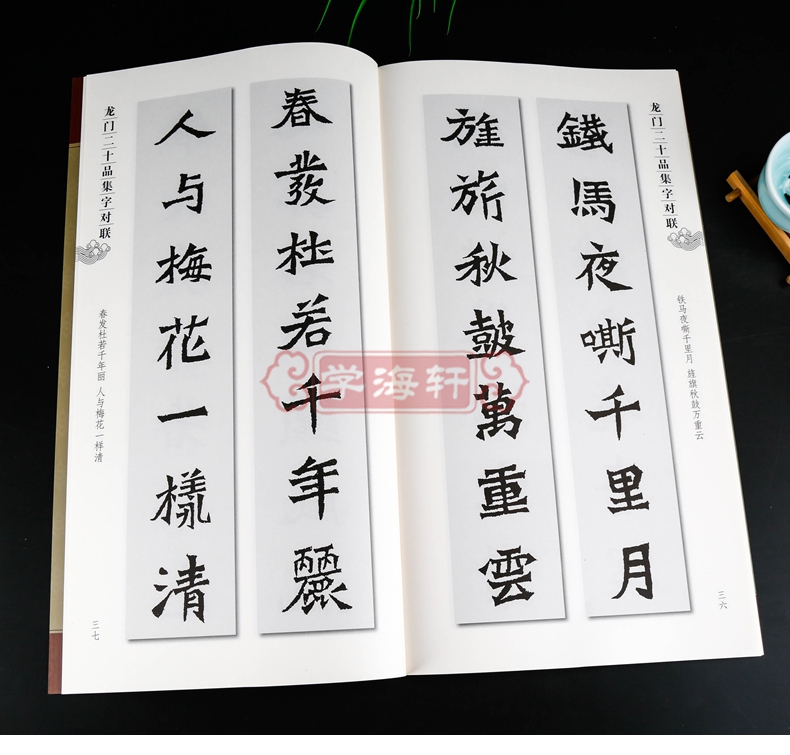 龙门二十品集字对联
铁马夜嘶千里月 旌旗秋鼓万重云
三六
鐵馬夜嘶千里月
旌旂秋皷萬重雲
春發杜若千年麗
人与梅花一樣清
龙门二十品集字对联
春发杜若千年丽 人与梅花一样清
三七
学海轩